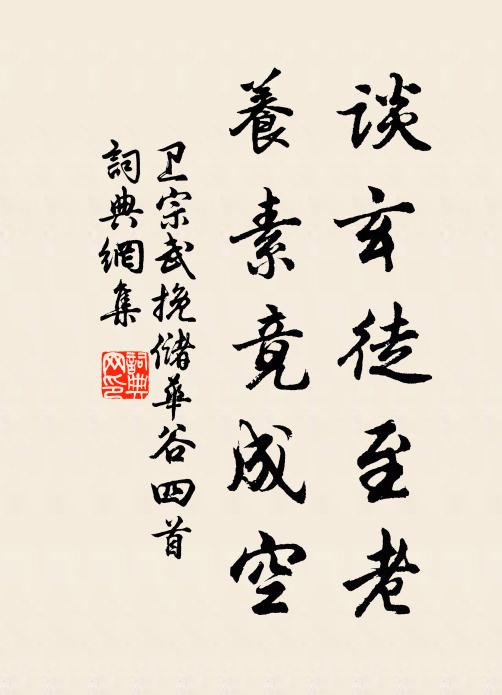 谈玄徒至老
養素竟成空
卫宗武挽儲華谷四首
詞典網集
詞典
网印